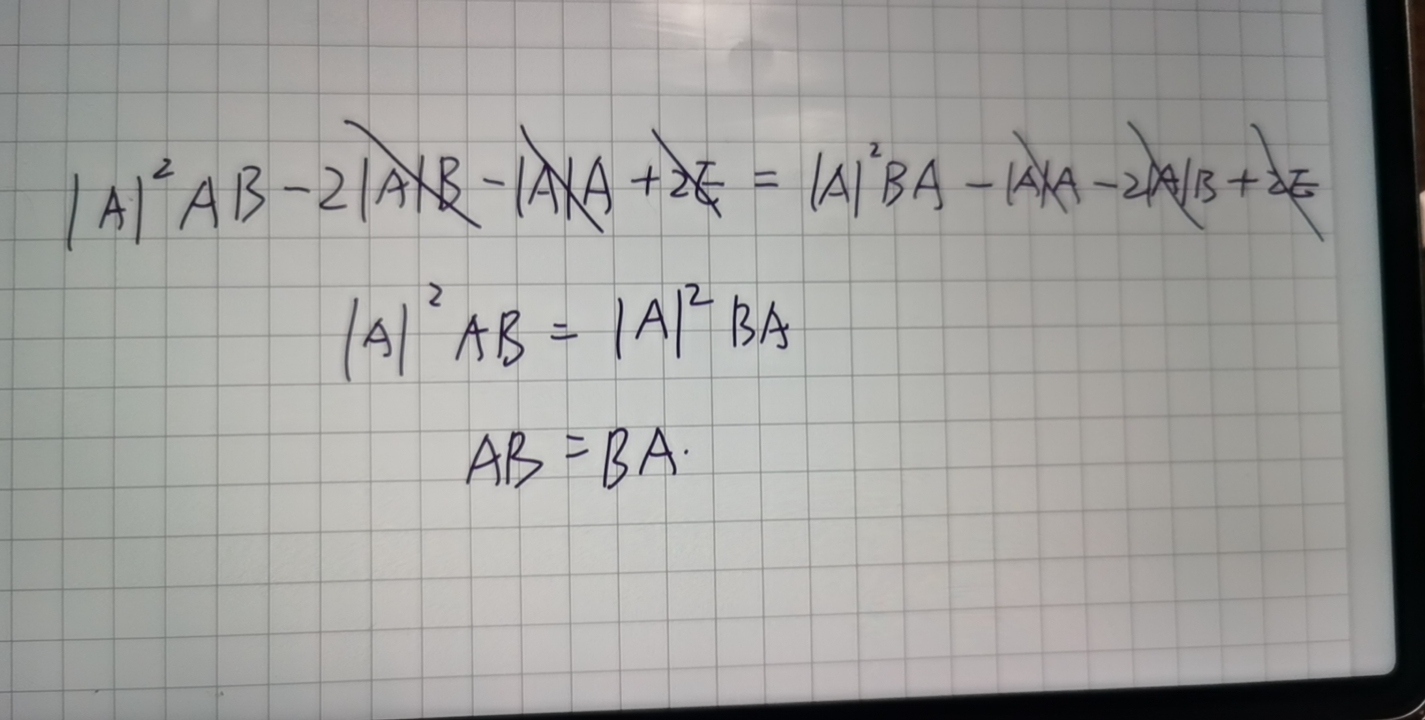 |A|² AB - 2|A|B - |A|A + 2E = |A|² BA - |A|A - 2|A|B + 2E
|A|² AB = |A|² BA
AB = BA.